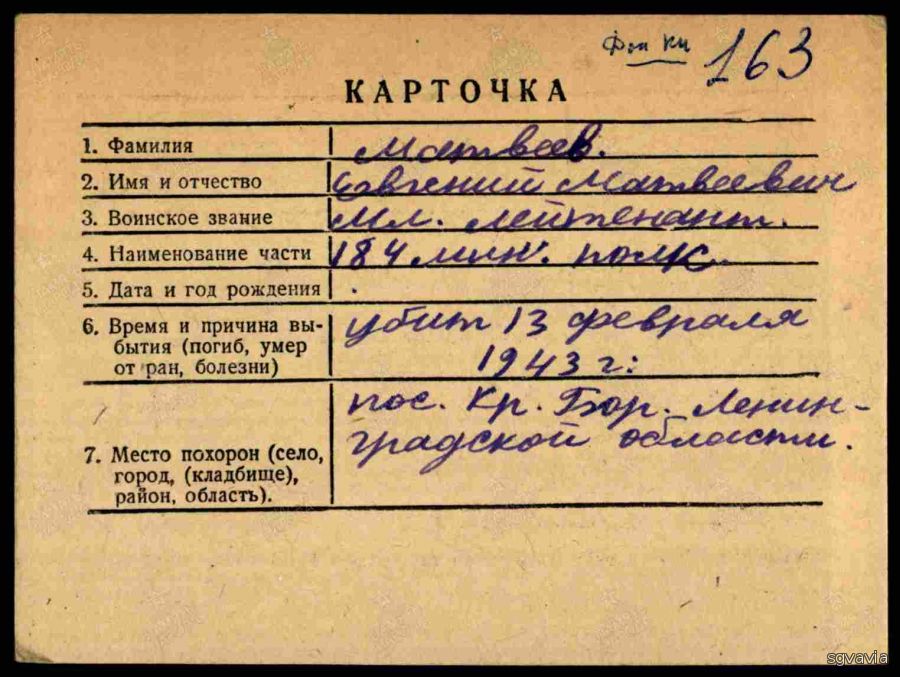 163
КАРТОЧКА
1. Фамилия Матвеев.
2. Имя и отчество Евгений Матвеевич
3. Воинское звание Мл. лейтенант.
4. Наименование части 184 мин. полк.
5. Дата и год рождения .
6. Время и причина вы- убит 13 февраля
бытия (погиб, умер 1943 г:
от ран, болезни)
пос. Кр. Бор. Ленин-
градской области.
7. Место похорон (село,
город, (кладбище),
район, область).
sgvavia